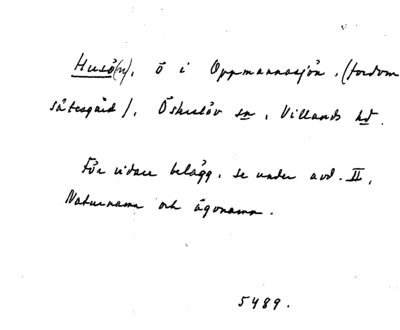 Husö(n), ö i Oppmannasjön, (fordom
sätesgård), Öskislöv sn, Villands hd.
För vidare belägg, se under avd. II,
Naturnamn och ägonamn.
5489.